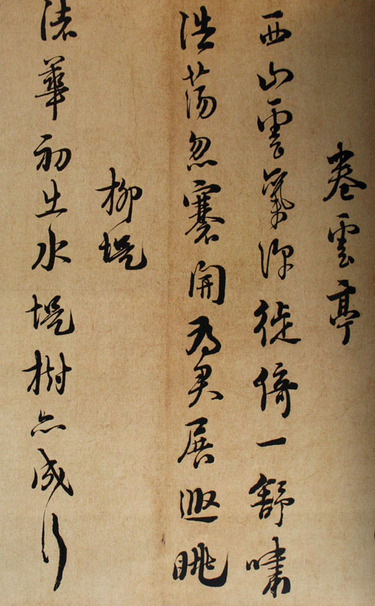 卷雲亭
西山雲氣深徙倚一舒嘯
浩蕩忽褰開為君展遐眺
柳堤
渚華初出水堤樹亦成行